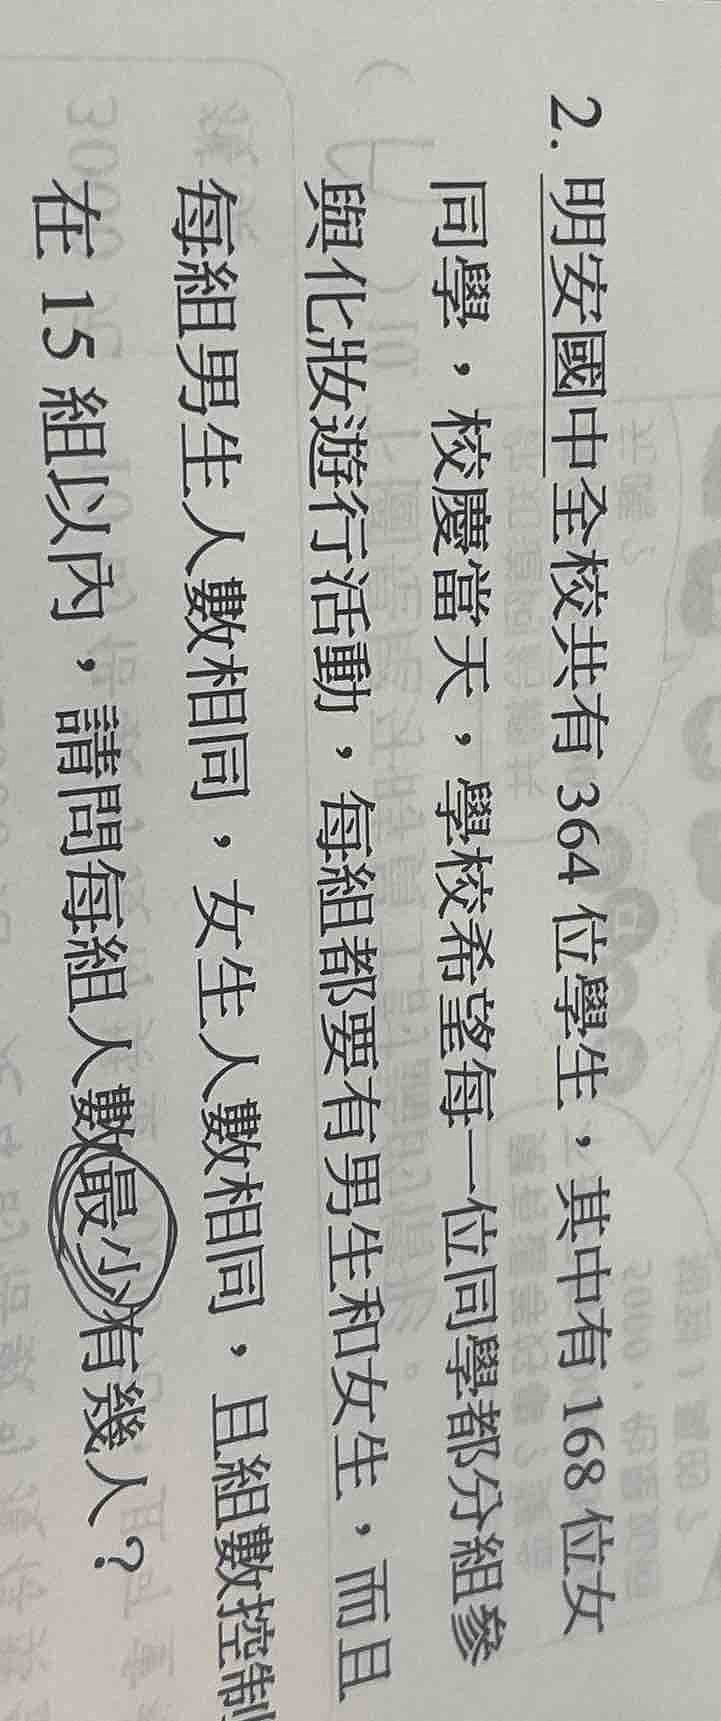 2. 明安國中全校共有 364 位學生，其中有 168 位女
同學，校慶當天，學校希望每一位同學都分組參
與化妝遊行活動，每組都要有男生和女生，而且
每組男生人數相同，女生人數相同，且組數控制
在 15 組以內，請問每組人數最少有幾人？